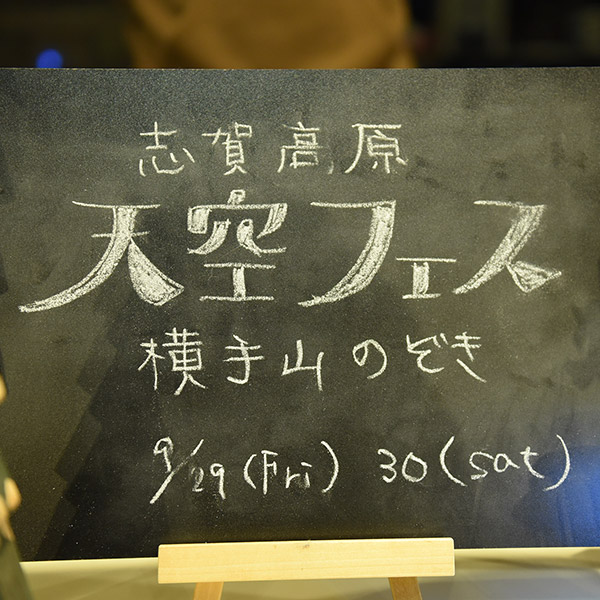 志賀高原
天空フェス
横手山のぞき
9/29(Fri) 30(sat)